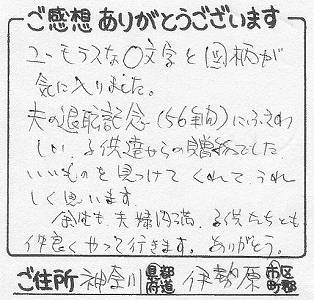 ご感想ありがとうございます
ユーモラスな〇文字と図柄が
気に入りました。
夫の退職記念(56年間)にふさわ
しい、子供達からの贈物でした
いいものを見つけてくれてうれ
しく思います。
今後も夫婦円満、子供たちとも
仲良くやって行きます。ありがとう。
ご住所 神奈川 都道府県 伊勢原 市区町郡